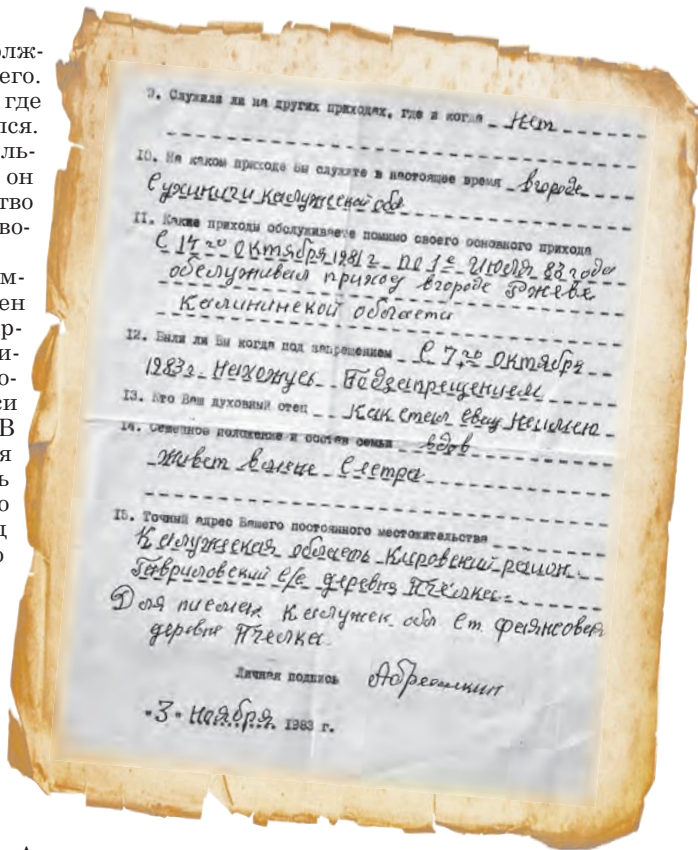 олж-
его.
где
лся.
ль-
он
ство
во-
м-
ен
р-
и-
о-
си
В
я
ь
о
ц
о
9. Служили ли на других приходах, где и когда нет
10. На каком приходе Вы служите в настоящее время вгороде
Сухиничи калужской обл
11. Какие приходы обслуживаете помимо своего основного прихода
С 14го Октября 1981г. по 1е Июля 83 года
обслуживал приход вгороде Ржеве
Калининской области
12. Были ли Вы когда под запрещением С 7го Октября
1983г. Нахожусь Подзапрещением
13. Кто Ваш духовный отец как стал свящ Неимею
14. Семейное положение и состав семьи вдов
живет вмене Сестра
15. Точный адрес Вашего постоянного местожительства
Калужская область Кировский район.
Гавриловский с/с деревня Пчёлка.
Для писем Калужск обл Ст. фаянсовая
деревня Пчелка.
Личная подпись Абрешкин
"3" Ноября 1983 г.